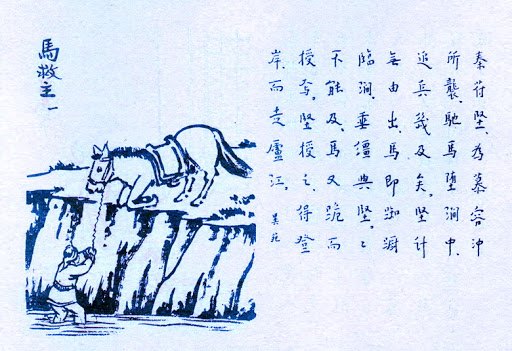 秦苻堅、為慕容沖
所襲、馳馬墮澗中、
追兵幾及矣。堅計
無由出、馬即踟躕
臨澗、垂韁與堅。〻
不能及、馬又跪而
授焉。堅授之、得登
岸、而走廬江。 異苑
馬救主 一